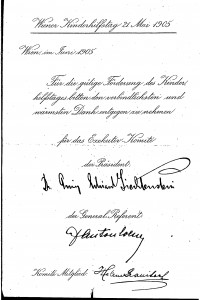 Wiener Kinderhilfstag 21. Mai 1905
Wien, im Juni 1905
Für die gütige Förderung des Kinder
hilfstages bitten den verbindlichsten und
wärmsten Dank entgegen zu nehmen
für das Exekutiv-Komité
der Präsident:
der General-Referent:
Komité-Mitglied: